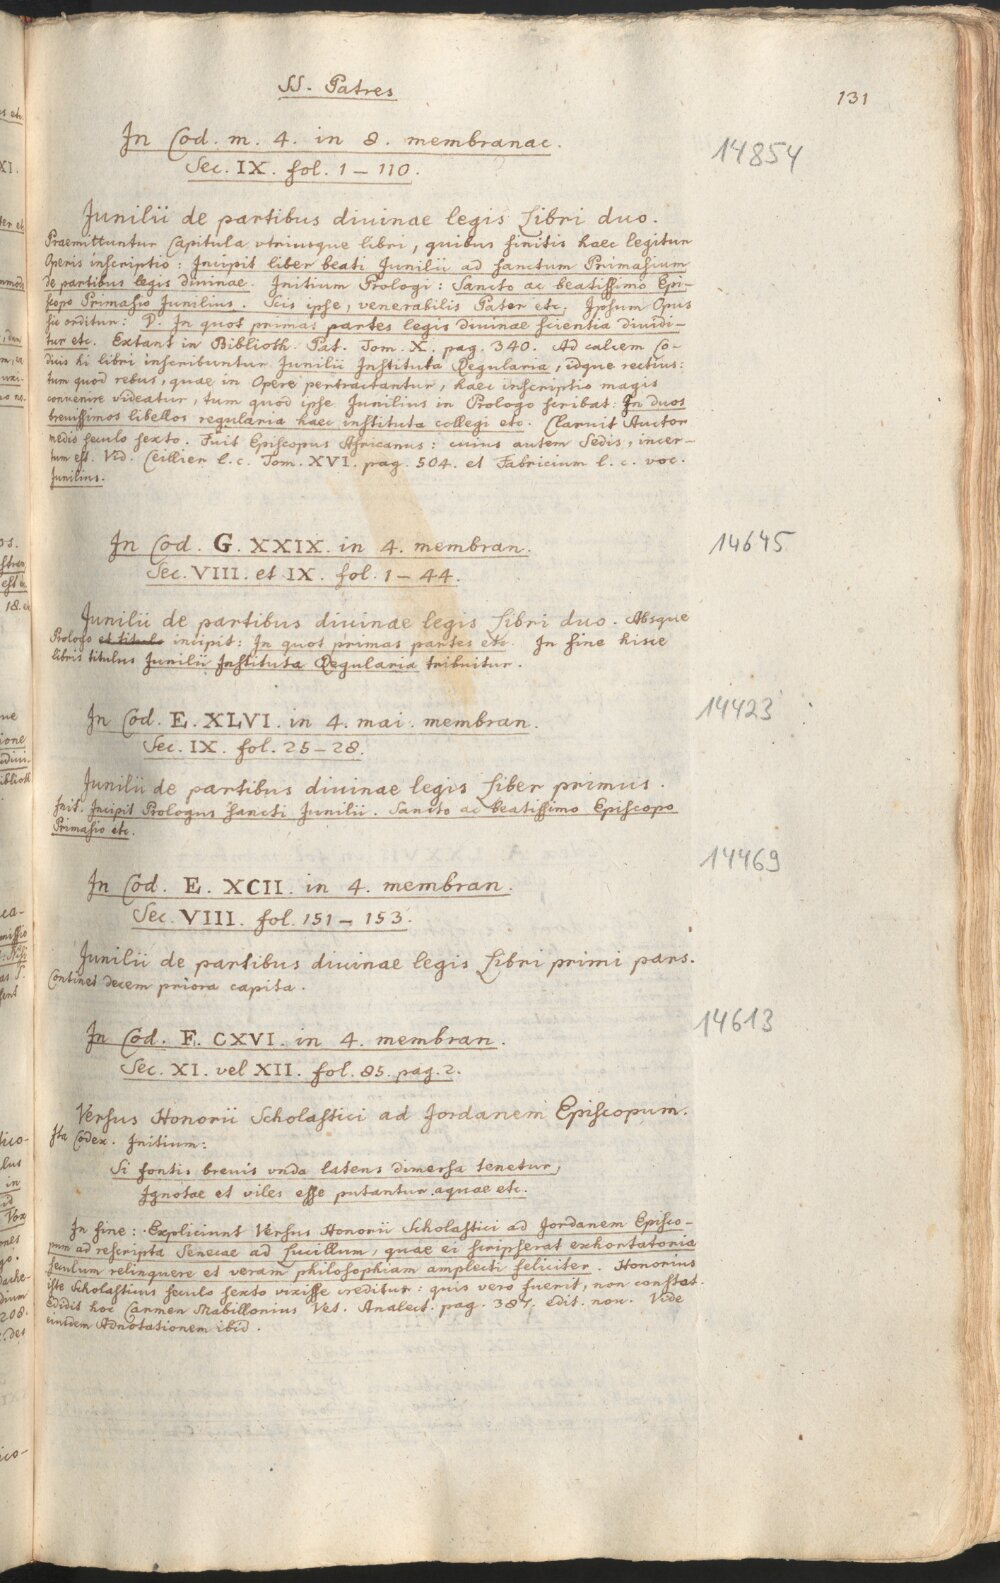 SS. Patres
131
In Cod. m. 4. in 8. membranac.
14854
Sec. IX. fol. 1 – 110.
Junilii de partibus diuinae legis Libri duo.
Praemittuntur Capitula vtriusque libri, quibus finitis haec legitur
Operis inscriptio: Incipit liber beati Junilii ad sanctum Primasium
de partibus legis diuinae. Initium Prologi: Sancto ac beatissimo Epi-
scopo Primasio Junilius. Scis ipse, venerabilis Pater etc. Ipsum Opus
sic orditur: D. In quot primas partes legis diuinae scientia diuidi-
tur etc. Extant in Biblioth. Pat. Tom. X. pag. 340. Ad calcem Co-
dicis hi libri inscribuntur Junilii Instituta Regularia, idque rectius:
tum quod rebus, quae in Opere pertractantur, haec inscriptio magis
conuenire videatur, tum quod ipse Junilius in Prologo scribat: In duos
breuissimos libellos regularia haec instituta collegi etc. Claruit Auctor
medio seculo sexto. Fuit Episcopus Africanus: cuius autem Sedis, incer-
tum est. Vid. Ceillier l. c. Tom. XVI. pag. 504. et Fabricium l. c. voc.
Junilius.
In Cod. G. XXIX. in 4. membran.
14645
Sec. VIII. et IX. fol. 1 – 44.
Junilii de partibus diuinae legis Libri duo. Absque
Prologo et titulo incipit: In quot primas partes etc. In fine hisce
libris titulus Junilii Instituta Regularia tribuitur.
In Cod. E. XLVI. in 4. mai. membran.
14423
Sec. IX. fol. 25 – 28.
Junilii de partibus diuinae legis Liber primus.
Init. Incipit Prologus sancti Junilii. Sancto ac beatissimo Episcopo
Primasio etc.
In Cod. E. XCII. in 4. membran.
14469
Sec. VIII. fol. 151 – 153.
Junilii de partibus diuinae legis Libri primi pars.
Continet decem priora capita.
In Cod. F. CXVI. in 4. membran.
14613
Sec. XI. vel XII. fol. 85. pag. 2.
Versus Honorii Scholastici ad Jordanem Episcopum.
Ita Codex. Initium:
Si fontis breuis vnda latens dimersa tenetur,
Ignotae et viles esse putantur aquae etc.
In fine: Expliciunt Versus Honorii Scholastici ad Jordanem Episco-
pum ad rescripta Senecae ad Lucillum, quae ei scripserat exhortatoria
seculum relinquere et veram philosophiam amplecti feliciter. Honorius
iste Scholasticus seculo sexto vixisse creditur: quis vero fuerit, non constat.
Edidit hoc Carmen Mabillonius Vet. Analect. pag. 387. edit. nou. Vide
eiusdem Adnotationem ibid.